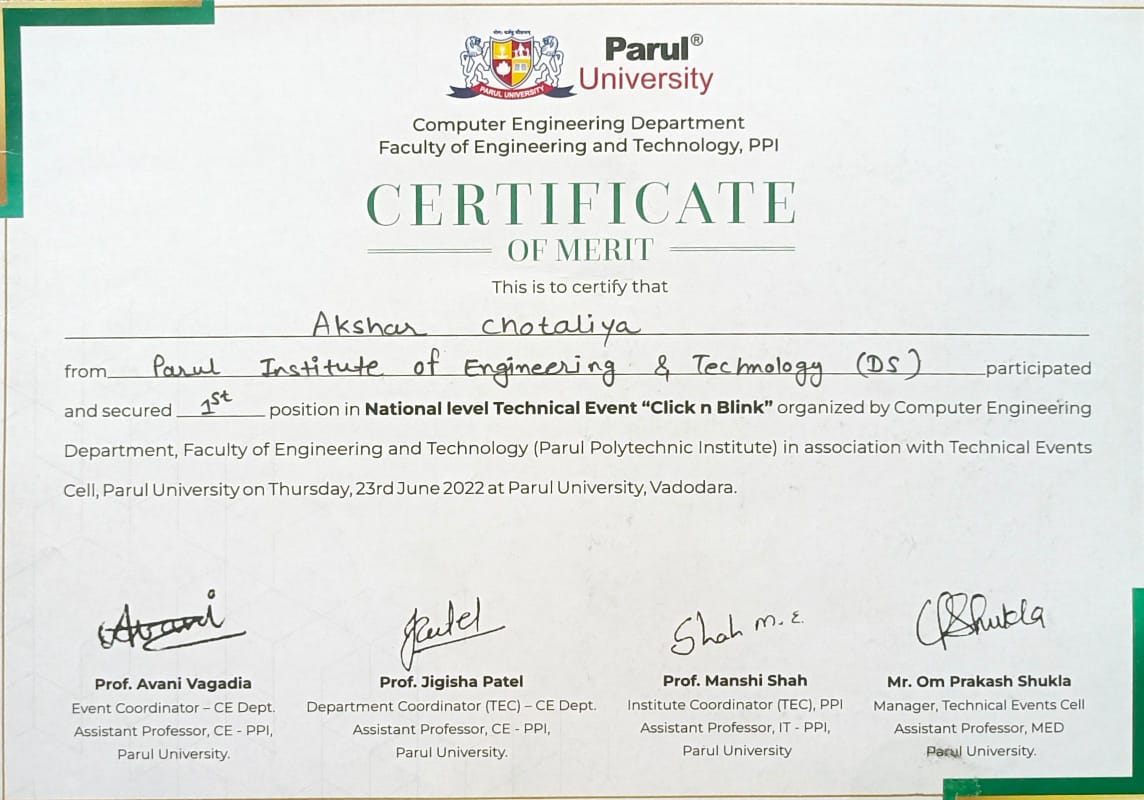 योगः कर्मसु कौशलम्
PARUL UNIVERSITY
Parul®
University
Computer Engineering Department
Faculty of Engineering and Technology, PPI
CERTIFICATE
OF MERIT
This is to certify that
Akshar Chotaliya
from Parul Institute of Engineering & Technology (DS) participated
and secured 1st position in National level Technical Event “Click n Blink” organized by Computer Engineering
Department, Faculty of Engineering and Technology (Parul Polytechnic Institute) in association with Technical Events
Cell, Parul University on Thursday, 23rd June 2022 at Parul University, Vadodara.
Avani
JPatel
Shah M. E.
OPShukla
Prof. Avani Vagadia
Event Coordinator – CE Dept.
Assistant Professor, CE - PPI,
Parul University.
Prof. Jigisha Patel
Department Coordinator (TEC) – CE Dept.
Assistant Professor, CE - PPI,
Parul University.
Prof. Manshi Shah
Institute Coordinator (TEC), PPI
Assistant Professor, IT - PPI,
Parul University
Mr. Om Prakash Shukla
Manager, Technical Events Cell
Assistant Professor, MED
Parul University.